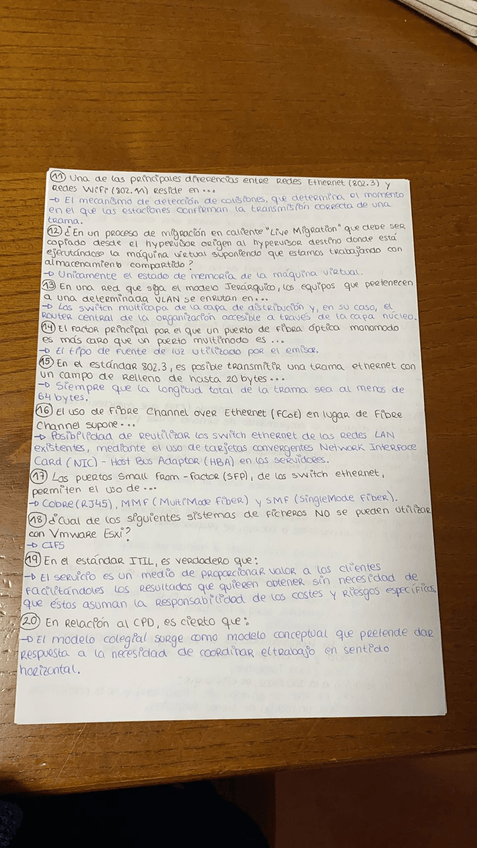 11) Una de las principales diferencias entre Redes Ethernet (802.3) y
Redes WiFi (802.11) reside en...
→ El mecanismo de detección de colisiones, que determina el momento
en el que las estaciones confirman la transmisión correcta de una
trama.
12) ¿En un proceso de migración en caliente "Live Migration" que debe ser
copiado desde el hypervisor origen al hypervisor destino donde está
ejecutándose la máquina virtual suponiendo que estamos trabajando con
almacenamiento compartido?
→ Unicamente el estado de memoria de la máquina virtual.
13) En una red que siga el modelo Jerárquico, los equipos que pertenecen
a una determinada VLAN se enrutan en...
→ Los switch multicapa de la capa de distribución y, en su caso, el
Router central de la organización accesible a través de la capa núcleo.
14) El factor principal por el que un puerto de fibra óptica monomodo
es más caro que un puerto multimodo es...
→ El tipo de fuente de luz utilizado por el emisor.
15) En el estándar 802.3, es posible transmitir una trama ethernet con
un campo de Relleno de hasta 20 bytes...
→ Siempre que la longitud total de la trama sea al menos de
64 bytes.
16) El uso de Fibre Channel over Ethernet (FCoE) en lugar de Fibre
Channel supone...
→ Posibilidad de Reutilizar los switch ethernet de las redes LAN
existentes, mediante el uso de tarjetas convergentes Network Interface
Card (NIC) - Host Bus Adaptor (HBA) en los servidores.
17) Los puertos Small From-Factor (SFP), de los switch ethernet,
permiten el uso de...
→ Cobre (RJ45), MMF (MultiMode Fiber) y SMF (SingleMode Fiber).
18) ¿Cual de los siguientes sistemas de ficheros NO se pueden utilizar
con Vmware Esxi?
→ CIFS
19) En el estándar ITIL, es verdadero que:
→ El servicio es un medio de proporcionar valor a los clientes
facilitándoles los resultados que quieren obtener sin necesidad de
que estos asuman la Responsabilidad de los costes y Riesgos específicos
20) En Relación al CPD, es cierto que:
→ El modelo colegial surge como modelo conceptual que pretende dar
respuesta a la necesidad de coordinar el trabajo en sentido
horizontal.